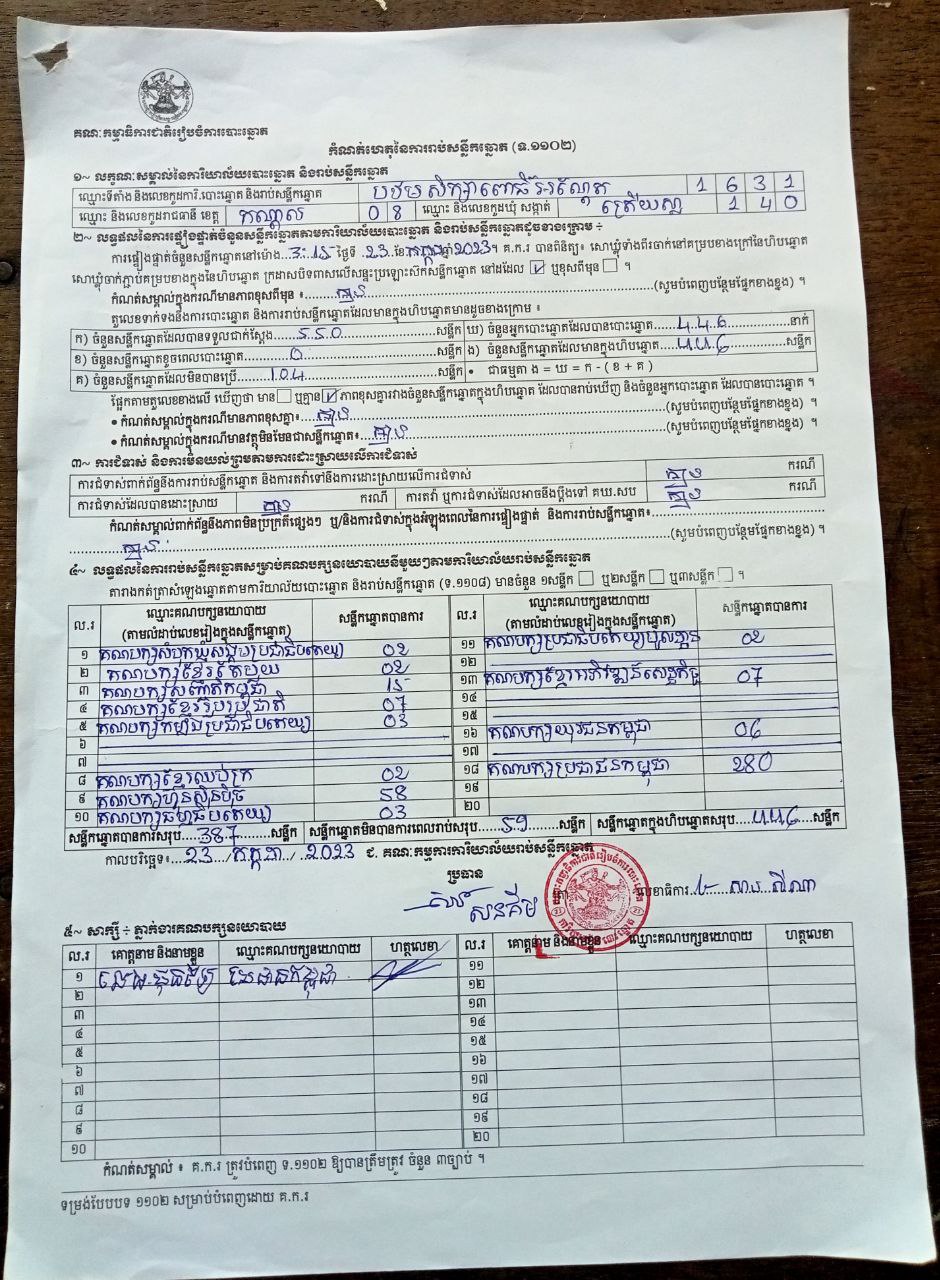 គណៈកម្មាធិការជាតិរៀបចំការបោះឆ្នោត
កំណត់ហេតុនៃការរាប់សន្លឹកឆ្នោត (ទ.១១០២)
១~ លក្ខណៈសម្គាល់នៃការិយាល័យបោះឆ្នោត និងរាប់សន្លឹកឆ្នោត
ឈ្មោះទីតាំង និងលេខកូដការិ.បោះឆ្នោត និងរាប់សន្លឹកឆ្នោត បឋមសិក្សាពោធិ៍អណ្ដែត 1 6 3 1
ឈ្មោះ និងលេខកូដរាជធានី ខេត្ត កណ្តាល 0 8 ឈ្មោះ និងលេខកូដឃុំ សង្កាត់ ត្រើយស្លា 1 4 0
២~ លទ្ធផលនៃការផ្ទៀងផ្ទាត់ចំនួនសន្លឹកឆ្នោតតាមការិយាល័យបោះឆ្នោត និងរាប់សន្លឹកឆ្នោតដូចខាងក្រោម ÷
ការផ្ទៀងផ្ទាត់ចំនួនសន្លឹកឆ្នោតនៅម៉ោង...3:15 ថ្ងៃទី 23 ខែកក្កដាឆ្នាំ2023។ គ.ក.រ បានពិនិត្យ៖ សោឃ្លុំទាំងពីរចាក់នៅគម្របខាងក្រៅនៃហិបឆ្នោត
សោឃ្លុំចាក់ភ្ជាប់គម្របខាងក្នុងនៃហិបឆ្នោត ក្រដាសបិទពាសលើសន្ទះប្រឡោះសិកសន្លឹកឆ្នោត នៅដដែល ☑ ឬខុសពីមុន ☐ ។
កំណត់សម្គាល់ក្នុងករណីមានភាពខុសពីមុន ៖ គ្មាន (សូមបំពេញបន្ថែមផ្នែកខាងខ្នង) ។
តួលេខទាក់ទងនឹងការបោះឆ្នោត និងការរាប់សន្លឹកឆ្នោតដែលមានក្នុងហិបឆ្នោតមានដូចខាងក្រោម ៖
ក) ចំនួនសន្លឹកឆ្នោតដែលបានទទួលជាក់ស្តែង 550 សន្លឹក ឃ) ចំនួនអ្នកបោះឆ្នោតដែលបានបោះឆ្នោត 446 នាក់
ខ) ចំនួនសន្លឹកឆ្នោតខូចពេលបោះឆ្នោត 0 សន្លឹក ង) ចំនួនសន្លឹកឆ្នោតដែលមានក្នុងហិបឆ្នោត 446 សន្លឹក
គ) ចំនួនសន្លឹកឆ្នោតដែលមិនបានប្រើ 104 សន្លឹក • ជាធម្មតា ង = ឃ = ក - ( ខ + គ )
ផ្អែកតាមតួលេខខាងលើ ឃើញថា មាន ☐ ឬគ្មាន ☑ ភាពខុសគ្នារវាងចំនួនសន្លឹកឆ្នោតក្នុងហិបឆ្នោត ដែលបានរាប់ឃើញ និងចំនួនអ្នកបោះឆ្នោត ដែលបានបោះឆ្នោត ។
• កំណត់សម្គាល់ក្នុងករណីមានភាពខុសគ្នា៖ គ្មាន (សូមបំពេញបន្ថែមផ្នែកខាងខ្នង) ។
• កំណត់សម្គាល់ក្នុងករណីមានវត្ថុមិនមែនជាសន្លឹកឆ្នោត៖ គ្មាន (សូមបំពេញបន្ថែមផ្នែកខាងខ្នង) ។
៣~ ការជំទាស់ និងការមិនយល់ព្រមតាមការដោះស្រាយលើការជំទាស់
ការជំទាស់ពាក់ព័ន្ធនឹងការរាប់សន្លឹកឆ្នោត និងការតវ៉ាទៅនឹងការដោះស្រាយលើការជំទាស់ គ្មាន ករណី
ការជំទាស់ដែលបានដោះស្រាយ គ្មាន ករណី ការតវ៉ា ឬការជំទាស់ដែលអាចនឹងប្តឹងទៅ គឃ.សប គ្មាន ករណី
កំណត់សម្គាល់ពាក់ព័ន្ធនឹងភាពមិនប្រក្រតីផ្សេងៗ ឬ/និងការជំទាស់ក្នុងអំឡុងពេលនៃការផ្ទៀងផ្ទាត់ និងការរាប់សន្លឹកឆ្នោត៖
គ្មាន (សូមបំពេញបន្ថែមផ្នែកខាងខ្នង) ។
៤~ លទ្ធផលនៃការរាប់សន្លឹកឆ្នោតសម្រាប់គណបក្សនយោបាយនីមួយៗតាមការិយាល័យរាប់សន្លឹកឆ្នោត
តារាងកត់ត្រាសំឡេងឆ្នោតតាមការិយាល័យបោះឆ្នោត និងរាប់សន្លឹកឆ្នោត (ទ.១១០៨) មានចំនួន ១សន្លឹក ☐ ឬ២សន្លឹក ☐ ឬ៣សន្លឹក ☐ ។
ល.រ ឈ្មោះគណបក្សនយោបាយ (តាមលំដាប់លេខរៀងក្នុងសន្លឹកឆ្នោត) សន្លឹកឆ្នោតបានការ ល.រ ឈ្មោះគណបក្សនយោបាយ (តាមលំដាប់លេខរៀងក្នុងសន្លឹកឆ្នោត) សន្លឹកឆ្នោតបានការ
១ គណបក្សសំបុកឃ្មុំសង្គមប្រជាធិបតេយ្យ 02 ១១ គណបក្សប្រជាធិបតេយ្យមូលដ្ឋាន 02
២ គណបក្សខ្មែរតែមួយ 02 ១២
៣ គណបក្សសញ្ជាតិកម្ពុជា 15 ១៣ គណបក្សខ្មែរអភិវឌ្ឍន៍សេដ្ឋកិច្ច 07
៤ គណបក្សខ្មែររួបរួមជាតិ 07 ១៤
៥ គណបក្សកម្លាំងប្រជាធិបតេយ្យ 03 ១៥
៦ ១៦ គណបក្សយុវជនកម្ពុជា 06
៧ ១៧
៨ គណបក្សខ្មែរឈប់ក្រ 02 ១៨ គណបក្សប្រជាជនកម្ពុជា 280
៩ គណបក្សហ៊្វុនស៊ិនប៉ិច 58 ១៩
១០ គណបក្សធម្មាធិបតេយ្យ 03 ២០
សន្លឹកឆ្នោតបានការសរុប 387 សន្លឹក សន្លឹកឆ្នោតមិនបានការពេលរាប់សរុប 59 សន្លឹក សន្លឹកឆ្នោតក្នុងហិបឆ្នោតសរុប 446 សន្លឹក
កាលបរិច្ឆេទ៖ 23 / កក្កដា / 2023 ជ. គណៈកម្មការការិយាល័យរាប់សន្លឹកឆ្នោត
ប្រធាន
សនគីម លេខាធិការ
៥~ សាក្សី ÷ ភ្នាក់ងារគណបក្សនយោបាយ
ល.រ គោត្តនាម និងនាមខ្លួន ឈ្មោះគណបក្សនយោបាយ ហត្ថលេខា ល.រ គោត្តនាម និងនាមខ្លួន ឈ្មោះគណបក្សនយោបាយ ហត្ថលេខា
១ ១១
២ ១២
៣ ១៣
៤ ១៤
៥ ១៥
៦ ១៦
៧ ១៧
៨ ១៨
៩ ១៩
១០ ២០
កំណត់សម្គាល់ ៖ គ.ក.រ ត្រូវបំពេញ ទ.១១០២ ឱ្យបានត្រឹមត្រូវ ចំនួន ៣ច្បាប់ ។
ទម្រង់បែបបទ ១១០២ សម្រាប់បំពេញដោយ គ.ក.រ